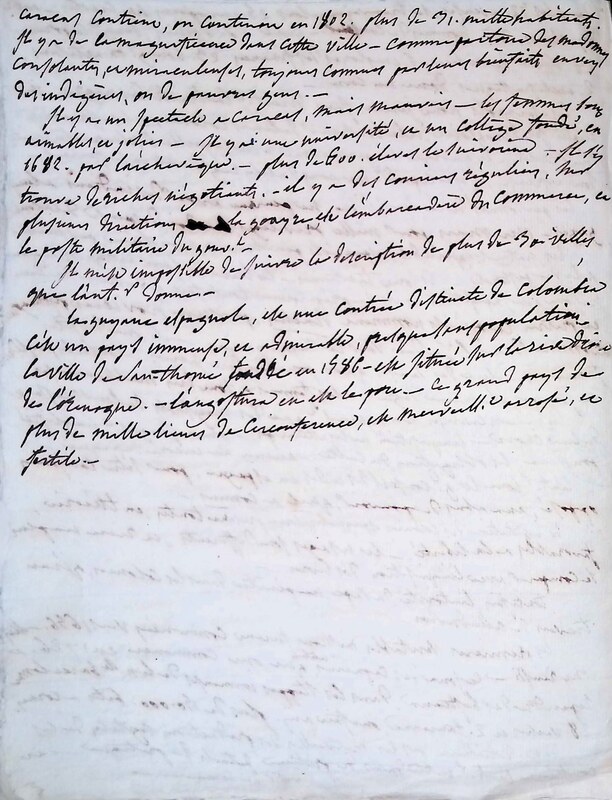 Caracas Contient, ou Contenoit en 1802. plus de 31. mille habitants
Il y a de la magnificence dans cette ville – comme partout des madones
Consolantes, et miraculeuses, toujours connues par leurs bienfaits envers
des indigènes, ou de pauvres gens. –
Il y a un Spectacle a Caracas, mais mauvais – les femmes sont
aimables, et jolies – Il y a une université, et un College fondé, en
1682. par l'archevêque. – plus de 600. élèves le suivoient – Il s'y
trouve de riches négotiants, – il y a des couriers réguliers, sur
plusieurs directions la goayre est l'embarcadère du Commerce, et
le poste militaire du gouvt. –
Il m'est impossible de suivre la description de plus de 30. villes
que l'aut.r donne. –
la guyane espagnole, est une Contrée distincte de Colombia
C'est un pays immense, et admirable, presque sans population.
la ville de San-thomé fondée en 1586 – est située sur la rive droite
de l'Orénoque. – l'angostura en est le port – Ce grand pays de
plus de mille lieues de Circonférence, est merveille.t arrosé, et
fertile. –